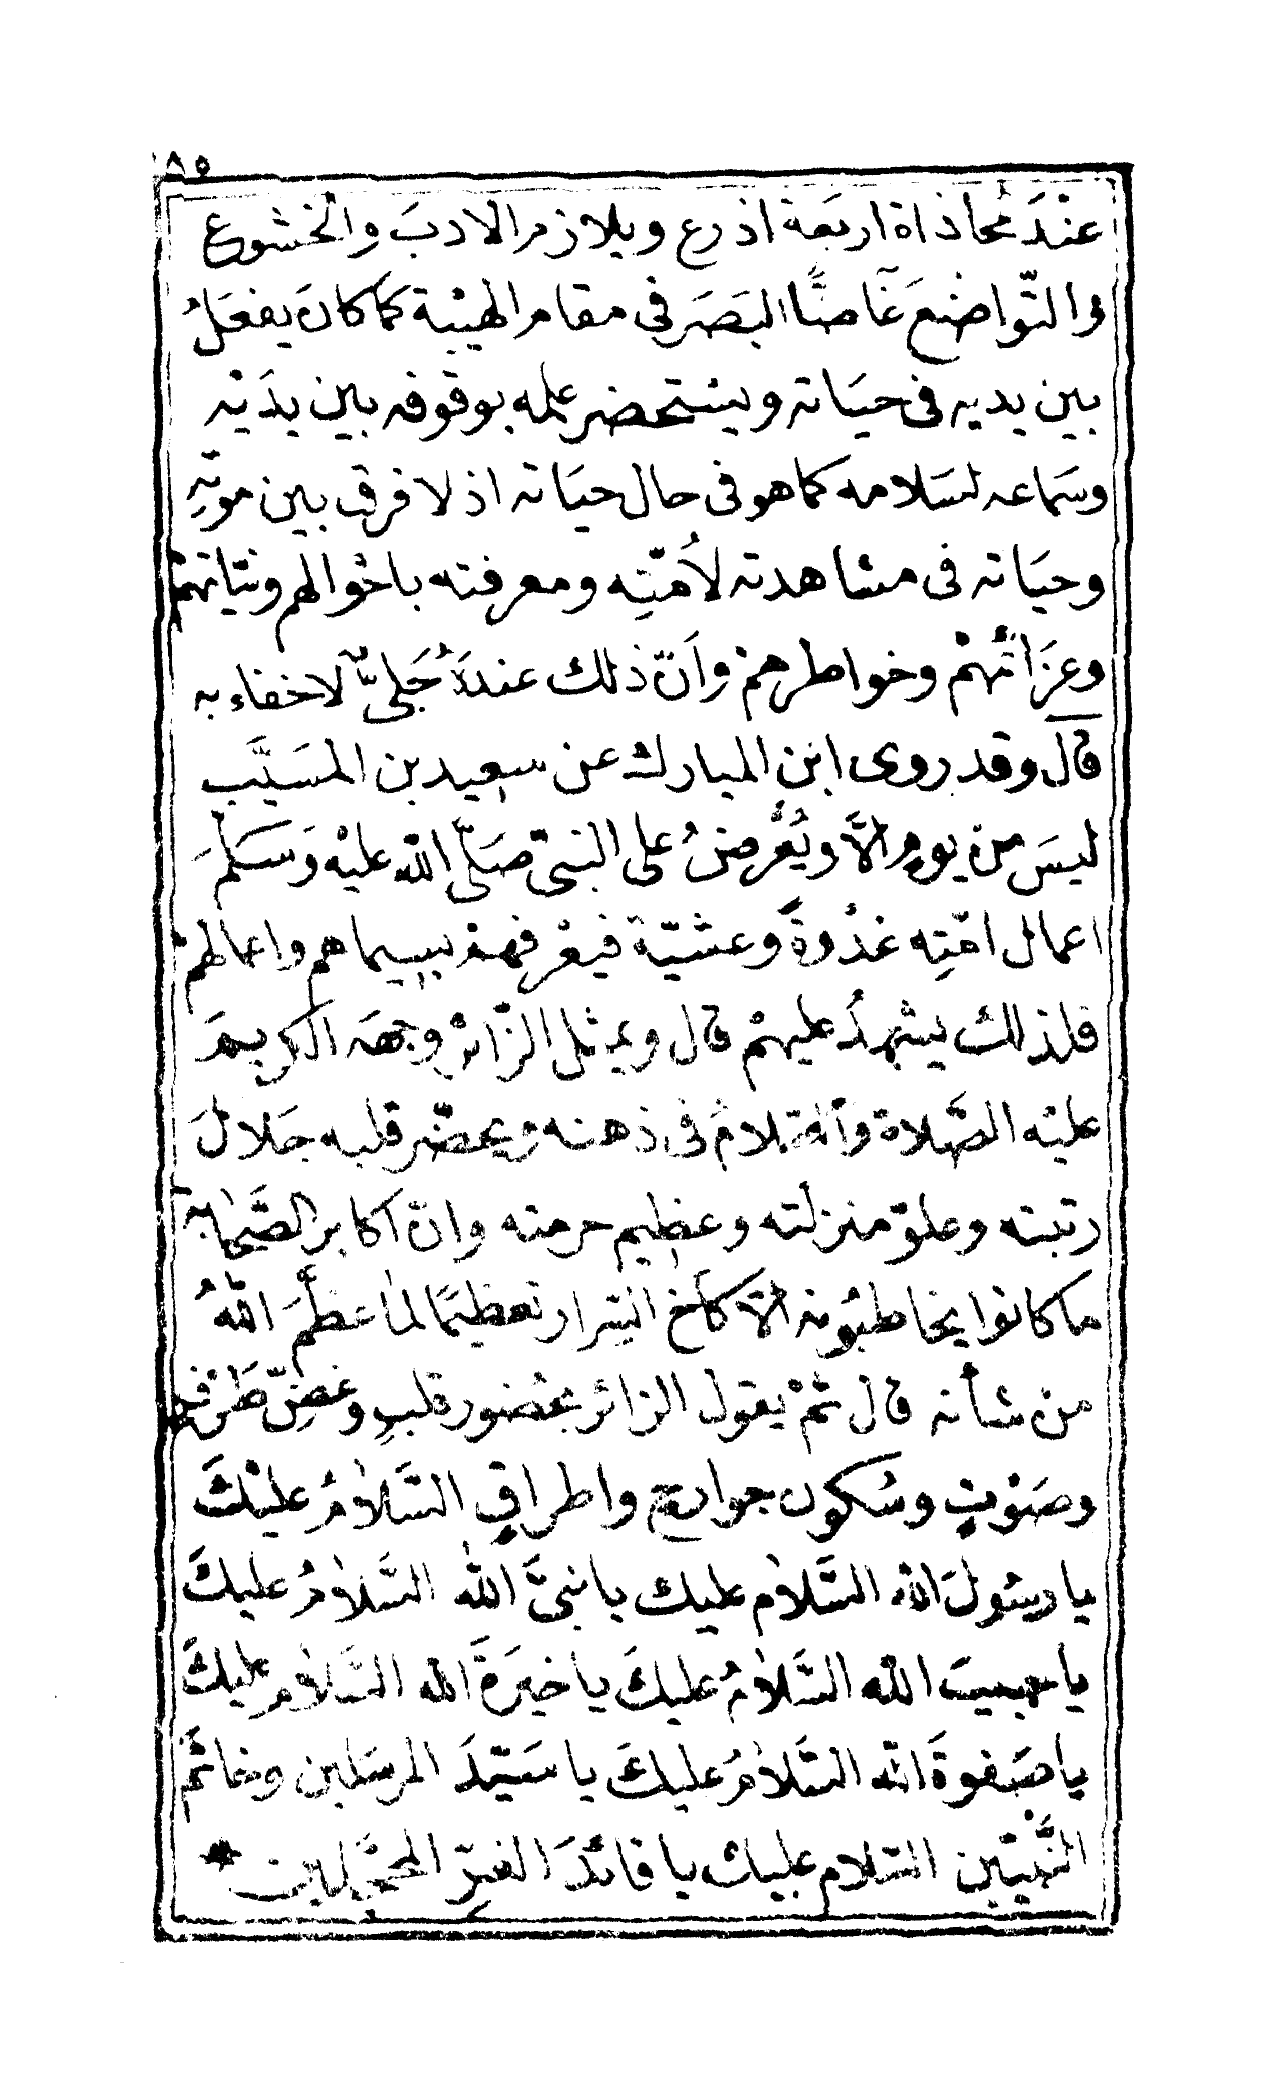 ٨٥
عنْدَ مُحاذاة اربَعة اذرع ويلازم الادبَ والخشوع
والتّواضعَ غَاضًّا البَصَر فى مقام الهيْبة كما كانَ يفعَلُ
بين يديه فى حيَاته ويستحضر علمه بوقوفه بين يدَيْه
وسَماعه لسَلامه كما هو فى حال حيَاته اذ لا فرق بين موتِه
وحيَاته فى مشاهدته لأمّتِه ومعرفته باحْوالهم ونيّاتهمْ
وعزَائمُهْم وخواطرهمْ وأنّ ذلك عندَهُ جَلىٌّ لا خفاء به
قال وقد روى ابن المبارك عن سعيد بن المسَيَّب
ليسَ من يومٍ الاَّ ويُعْرضُ على النبىّ صَلّى الله عليْه وَسَلمَ
اعمال امّتِه غدْوةً وعشيّة فيعْرفهمْ بسيماهم واعمالهمْ
فلذلك يشهدُ عليهمْ قال ويمثل الزّائرُ وجهَه الكريمَ
عليْه الصَّلاة والسَّلامُ فى ذهنه ويحضّر قلبه جَلالَ
رتبته وعلوّ منزلته وعظيم حرمته وانّ أكابر الصَّحابة
ما كانوا يخاطبُونه الاّ كأخ السِّرار تعظيمًا لما عظّمَ اللهُ
من شأنه قال ثمّ يقول الزائر بحضور قلبٍ وغضِّ طرْفٍ
وصَوْتٍ وسُكون جوارح واطراقٍ السَّلامُ عليْكَ
يا رسُولَ الله السَّلام عليك يا نبىَّ الله السَّلامُ عليكَ
يا حبيبَ الله السَّلامُ عليكَ يا خيَرةَ الله السَّلام عليكَ
يا صَفوةَ الله السَّلامُ عليكَ يا سَيّدَ المرسَلين وخاتمَ
النَّبيّين السّلام عليك يا قائدَ الغرِّ المحجَّلين